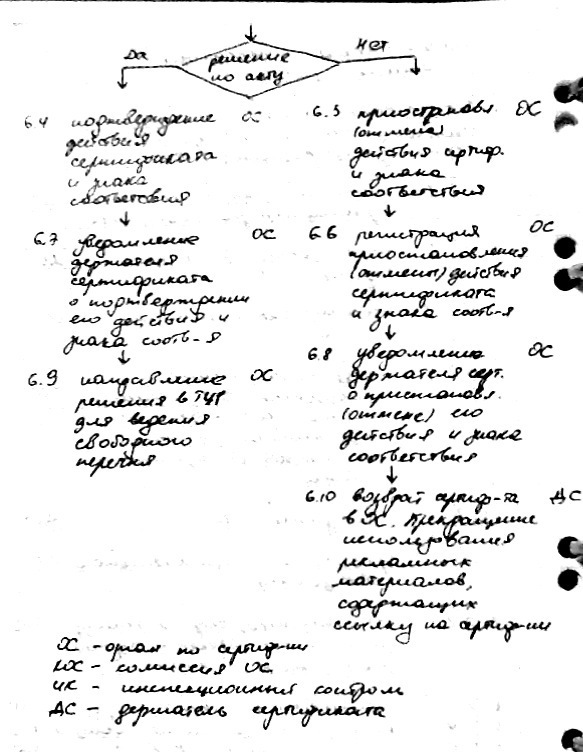 Да
решение
по акту
нет
6.4 подтверждение ОС
действия
сертификата
и знака
соответствия
6.7 уведомление ОС
держателя
сертификата
о подтверждении
его действия и
знака соотв-я
6.9 направление ОС
решения в
для ведения
свободного
перечня
6.5 приостановл ОС
(отмена)
действия сертиф.
и знака
соответствия
6.6 регистрация ОС
приостановления
(отмены) действия
сертификата
и знака соотв-я
6.8 уведомление ОС
держателя серт.
о приостановл.
(отмене) его
действия и знака
соответствия
6.10 возврат сертиф-та ДС
в ОС. Прекращение
использования
рекламных
материалов,
содержащих
ссылку на сертиф-ии
ОС – орган по сертиф-ии
КОС – комиссия ОС
ИК – инспекционный контроль
ДС – держатель сертификата